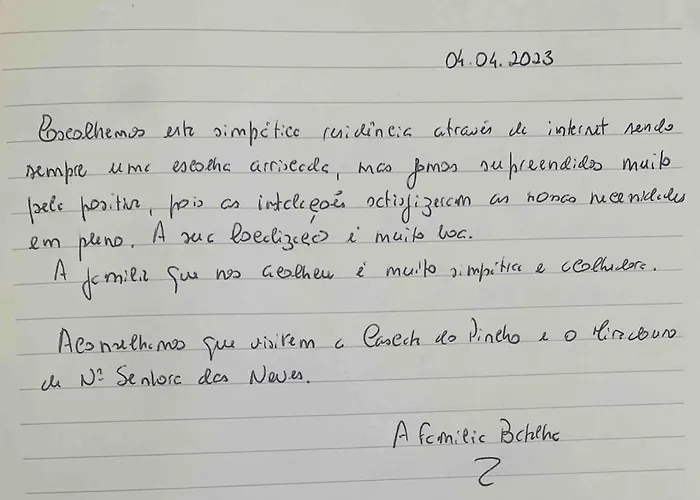 04.04.2023
Escolhemos esta simpática residência através de internet sendo
sempre uma escolha arriscada, mas fomos supreendidos muito
pelo positivo, pois as intalações satisfizeram as nossas necessidades
em pleno. A sua localização é muito boa.
A familia que nos acolheu é muito simpática e acolhedora.
Aconselhamos que visitem a Cascata do Pincho e o Miradouro
de Nª Senhora das Neves.
A familia